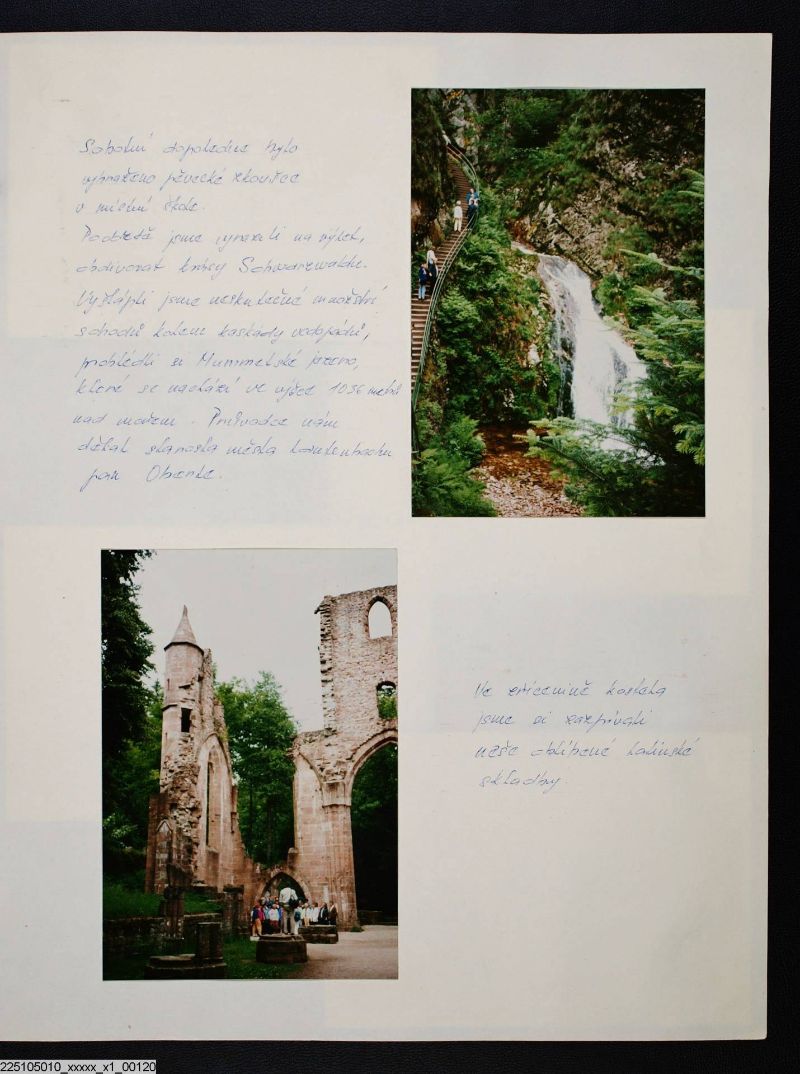 Sobotní dopoledne bylo
vyhrazeno pěvecké zkoušce
v místní škole.
Poobědě jsme vyrazili na výlet,
obdivovat krásy Schwarzwaldu.
Vyšlapali jsme neskutečné množství
schodů kolem kaskády vodopádů,
prohlédli si Mummelské jezero,
které se nachází ve výšce 1036 metrů
nad mořem. Průvodce nám
dělal starosta města
pan
Ve zřícenině kostela
jsme si zazpívali
naše oblíbené latinské
skladby.
225105010_xxxxx_x1_00120